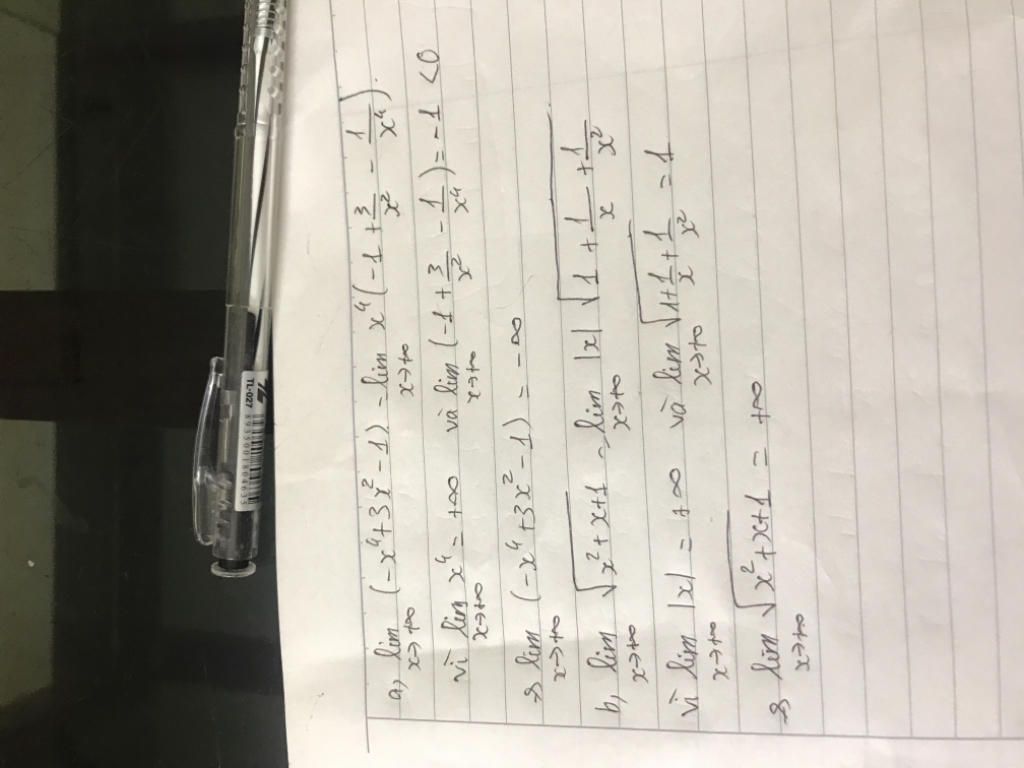 a, lim x→+∞ (-x⁴+3x²-1) = lim x→+∞ x⁴(-1+3/x² - 1/x⁴).
vì lim x→+∞ x⁴ = +∞ và lim x→+∞ (-1+3/x² - 1/x⁴) = -1 <0
→ lim x→+∞ (-x⁴+3x²-1) = -∞
b, lim x→+∞ √(x²+x+1) = lim x→+∞ |x| √(1+1/x+1/x²)
vì lim x→+∞ |x| = +∞ và lim x→+∞ √(1+1/x+1/x²) = 1
→ lim x→+∞ √(x²+x+1) = +∞
TL-027